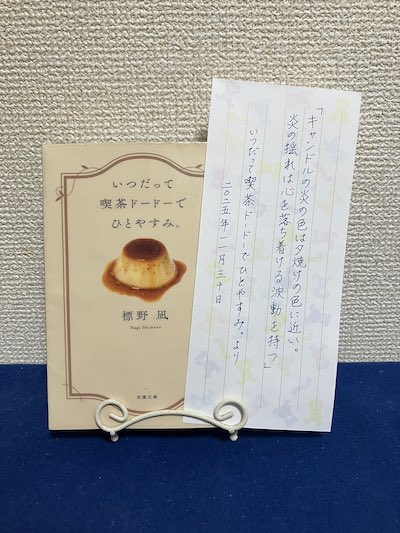 いつだって
喫茶ドードーで
ひとやすみ。
標野 凪
Nagi Shimeno
双葉文庫
「キャンドルの炎の色は夕焼けの色に近い。
炎の揺れは心を落ち着ける波動を持つ」
いつだって喫茶ドードーでひとやすみ。より
二〇二五年一一月三十日